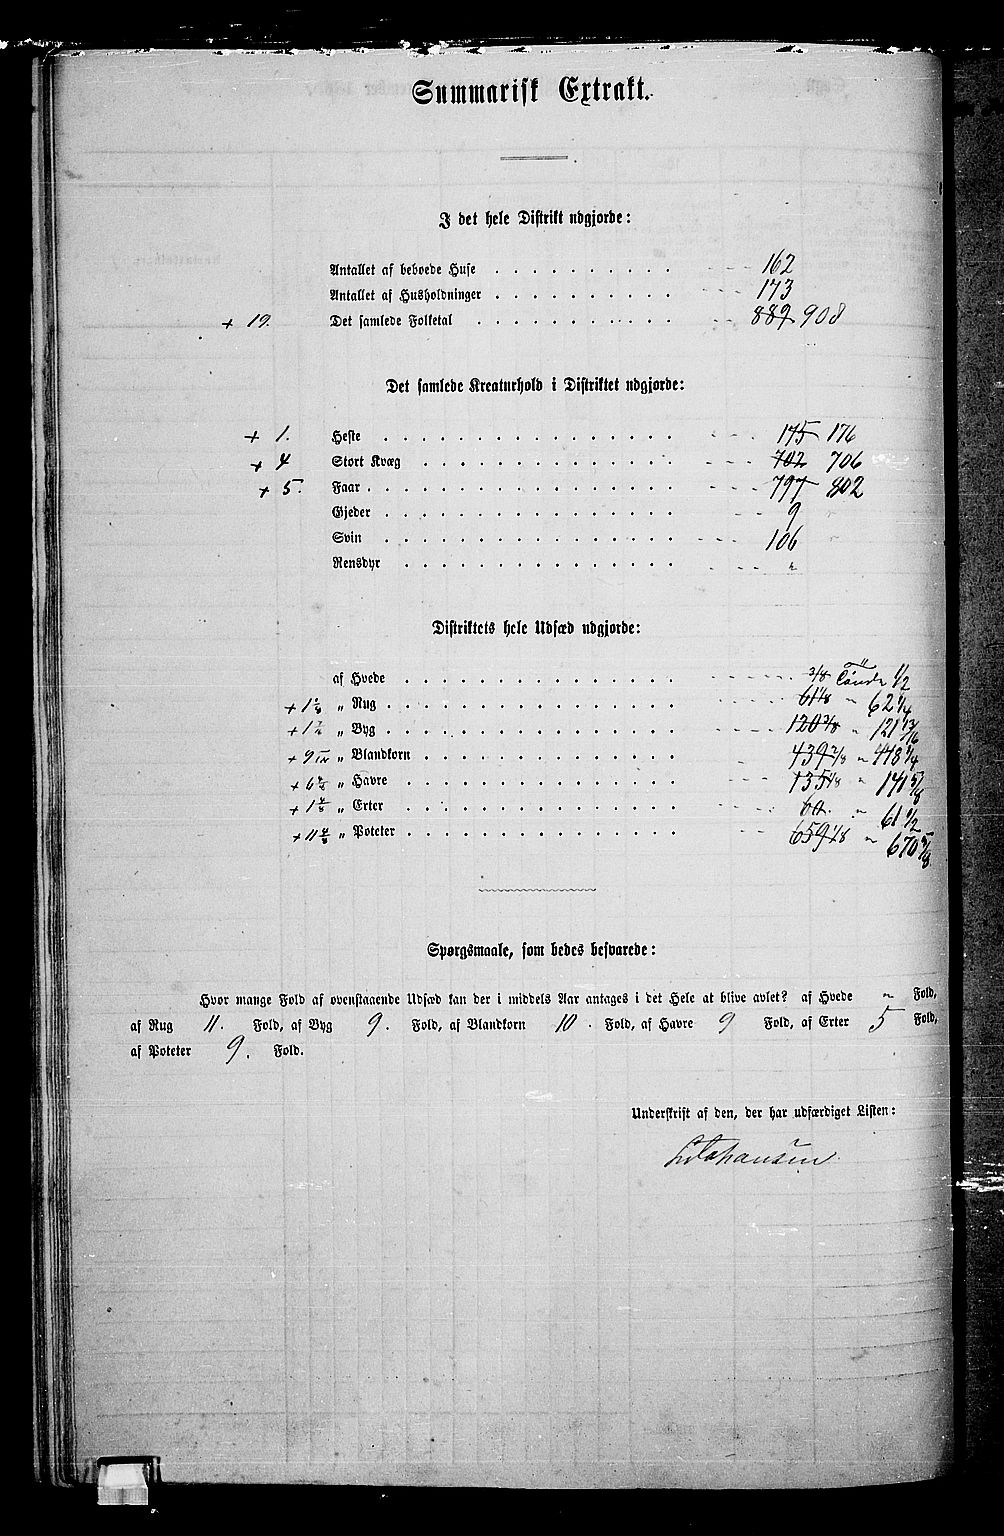 Summarisk Extrakt.
I det hele Distrikt udgjorde:
Antallet af beboede Huse . . . . . . . . . . 162
Antallet af Husholdninger . . . . . . . . . . 173
+ 19. Det samlede Folketal . . . . . . . . . . . 889 908
Det samlede Kreaturhold i Distriktet udgjorde:
+ 1. Heste . . . . . . . . . . . . . . . . 175 176
+ 4 Stort Kvæg . . . . . . . . . . . . . . 702 706
+ 5. Faar . . . . . . . . . . . . . . . . . 797 802
Gjeder . . . . . . . . . . . . . . . . 9
Svin . . . . . . . . . . . . . . . . 106
Rensdyr . . . . . . . . . . . . . . . "
Distriktets hele Udsæd udgjorde:
af Hvede . . . . . . . . . . . . . . . 3/8 Tønde 1/2
„ Rug . . . . . . . . . . . . . . . . 61 1/8 " 62 1/4
„ Byg . . . . . . . . . . . . . . . . 120 3/8 " 121 13/16
„ Blandkorn . . . . . . . . . . . . . . 439 2/8 " 448 3/4
„ Havre . . . . . . . . . . . . . . . 135 1/8 " 141 5/8
„ Erter . . . . . . . . . . . . . . . 60 " 61 1/2
„ Poteter . . . . . . . . . . . . . . 659 1/8 " 670 5/8
Spørgsmaale, som bedes besvarede:
Hvor mange Fold af ovenstaaende Udsæd kan der i middels Aar antages i det Hele at blive avlet? af Hvede " Fold,
af Rug 11. Fold, af Byg 9. Fold, af Blandkorn 10. Fold, af Havre 9 Fold, af Erter 5 Fold,
af Poteter 9. Fold.
Underskrift af den, der har udfærdiget Listen:
Johansen